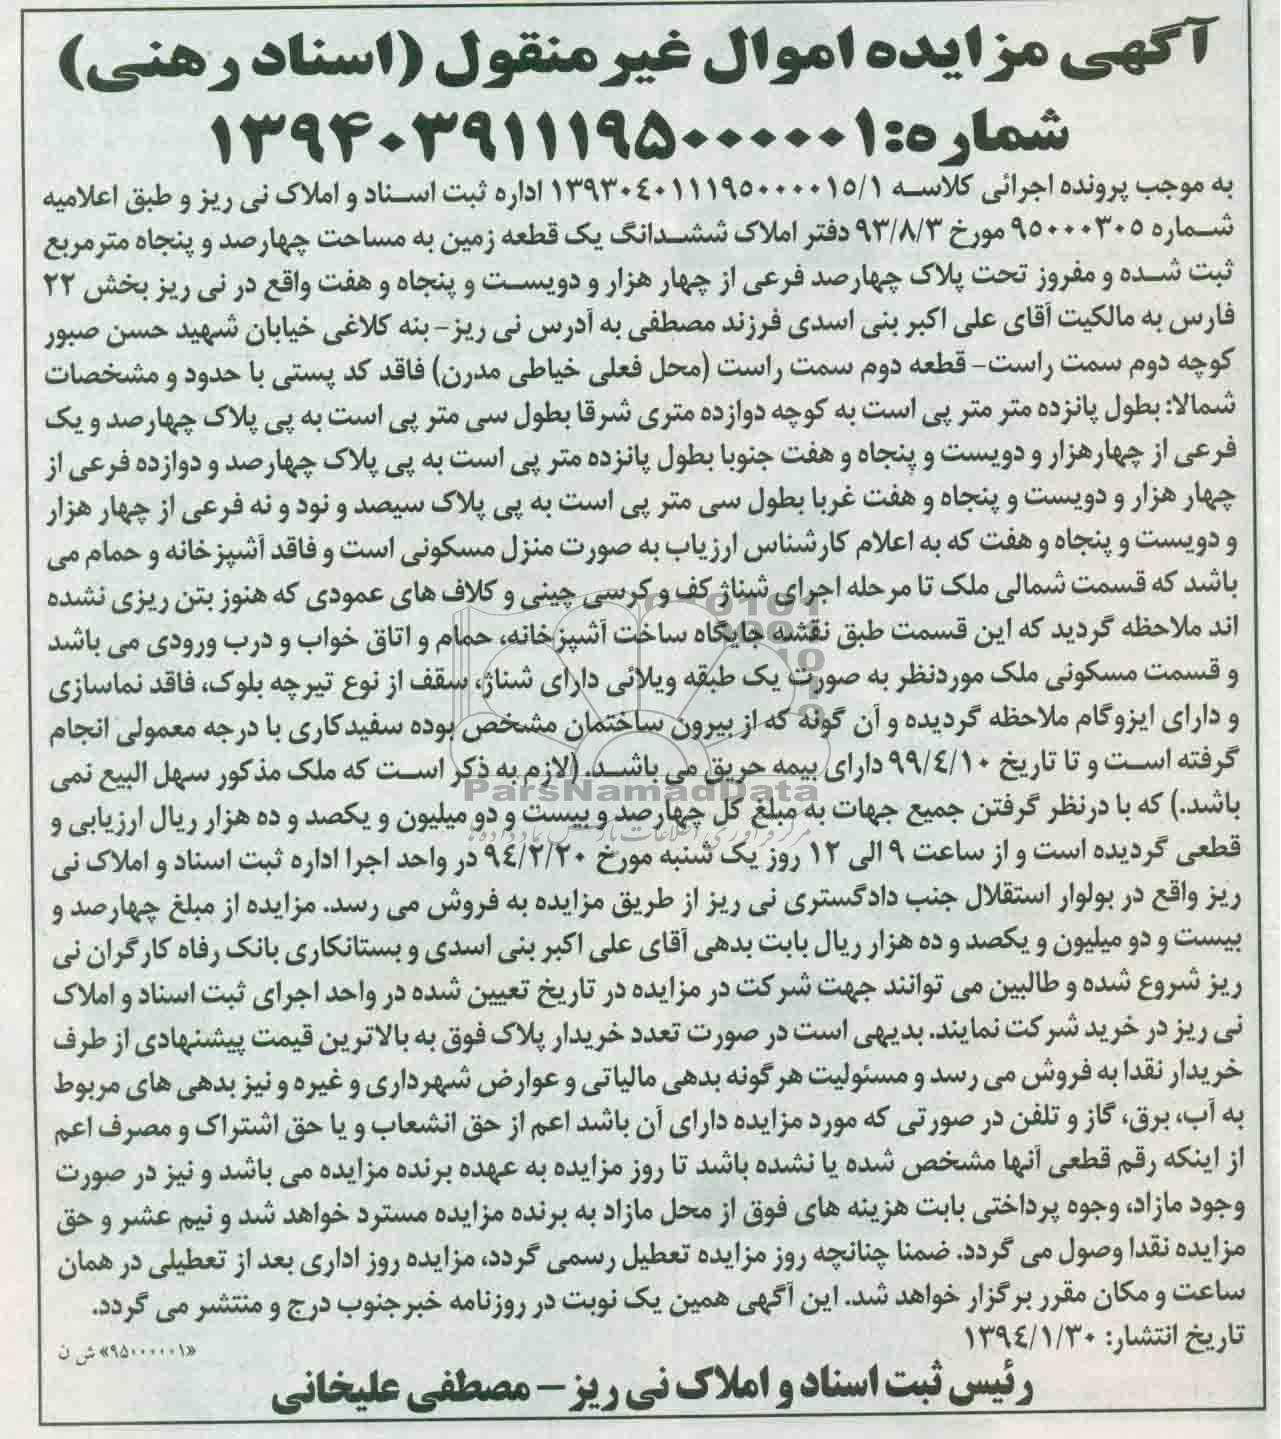 آگهی مزایده اموال غیر منقول (اسناد رهنی)
شماره: ۱۳۹۴۰۳۹۱۱۱۹۵۰۰۰۰۰۰۱
به موجب پرونده اجرائی کلاسه ۱۳۹۳۰۴۰۱۱۱۹۵۰۰۰۰۱۵/۱ اداره ثبت اسناد و املاک نی ریز و طبق اعلامیه
شماره ۹۵۰۰۰۳۰۵ مورخ ۹۳/۸/۳ دفتر املاک ششدانگ یک قطعه زمین به مساحت چهارصد و پنجاه مترمربع
ثبت شده و مفروز تحت پلاک چهارصد فرعی از چهار هزار و دویست و پنجاه و هفت واقع در نی ریز بخش ۲۲
فارس به مالکیت آقای علی اکبر بنی اسدی فرزند مصطفی به آدرس نی ریز- بنه کلاغی خیابان شهید حسن صبور
کوچه دوم سمت راست- قطعه دوم سمت راست (محل فعلی خیاطی مدرن) فاقد کد پستی با حدود و مشخصات
شمالا: بطول پانزده متر متر پی است به کوچه دوازده متری شرقا بطول سی متر پی است به پی پلاک چهارصد و یک
فرعی از چهارهزار و دویست و پنجاه و هفت جنوبا بطول پانزده متر پی است به پی پلاک چهارصد و دوازده فرعی از
چهار هزار و دویست و پنجاه و هفت غربا بطول سی متر پی است به پی پلاک سیصد و نود و نه فرعی از چهار هزار
و دویست و پنجاه و هفت که به اعلام کارشناس ارزیاب به صورت منزل مسکونی است و فاقد آشپزخانه و حمام می
باشد که قسمت شمالی ملک تا مرحله اجرای شناژ کف و کرسی چینی و کلاف های عمودی که هنوز بتن ریزی نشده
اند ملاحظه گردید که این قسمت طبق نقشه جایگاه ساخت آشپزخانه، حمام و اتاق خواب و درب ورودی می باشد
و قسمت مسکونی ملک موردنظر به صورت یک طبقه ویلائی دارای شناژ، سقف از نوع تیرچه بلوک، فاقد نماسازی
و دارای ایزوگام ملاحظه گردیده و آن گونه که از بیرون ساختمان مشخص بوده سفیدکاری با درجه معمولی انجام
گرفته است و تا تاریخ ۹۹/۴/۱۰ دارای بیمه حریق می باشد. (لازم به ذکر است که ملک مذکور سهل البیع نمی
باشد.) که با درنظر گرفتن جمیع جهات به مبلغ کل چهارصد و بیست و دو میلیون و یکصد و ده هزار ریال ارزیابی و
قطعی گردیده است و از ساعت ۹ الی ۱۲ روز یک شنبه مورخ ۹۴/۲/۲۰ در واحد اجرا اداره ثبت اسناد و املاک نی
ریز واقع در بولوار استقلال جنب دادگستری نی ریز از طریق مزایده به فروش می رسد. مزایده از مبلغ چهارصد و
بیست و دو میلیون و یکصد و ده هزار ریال بابت بدهی آقای علی اکبر بنی اسدی و بستانکاری بانک رفاه کارگران نی
ریز شروع شده و طالبین می توانند جهت شرکت در مزایده در تاریخ تعیین شده در واحد اجرای ثبت اسناد و املاک
نی ریز در خرید شرکت نمایند. بدیهی است در صورت تعدد خریدار پلاک فوق به بالاترین قیمت پیشنهادی از طرف
خریدار نقدا به فروش می رسد و مسئولیت هرگونه بدهی مالیاتی و عوارض شهرداری و غیره و نیز بدهی های مربوط
به آب، برق، گاز و تلفن در صورتی که مورد مزایده دارای آن باشد اعم از حق انشعاب و یا حق اشتراک و مصرف اعم
از اینکه رقم قطعی آنها مشخص شده یا نشده باشد تا روز مزایده به عهده برنده مزایده می باشد و نیز در صورت
وجود مازاد، وجوه پرداختی بابت هزینه های فوق از محل مازاد به برنده مزایده مسترد خواهد شد و نیم عشر و حق
مزایده نقدا وصول می گردد. ضمنا چنانچه روز مزایده تعطیل رسمی گردد، مزایده روز اداری بعد از تعطیلی در همان
ساعت و مکان مقرر برگزار خواهد شد. این آگهی همین یک نوبت در روزنامه خبرجنوب درج و منتشر می گردد.
تاریخ انتشار: ۱۳۹۴/۱/۳۰
«۹۵۰۰۰۰۰۱» ش ن
رئیس ثبت اسناد و املاک نی ریز – مصطفی علیخانی
ParsNamadData